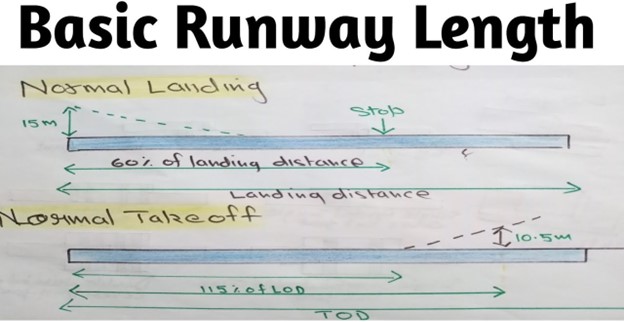 Basic Runway Length
Normal Landing
Stop
15m
60% of landing distance
Landing distance
Normal Takeoff
10.5m
115% of LOD
TOD